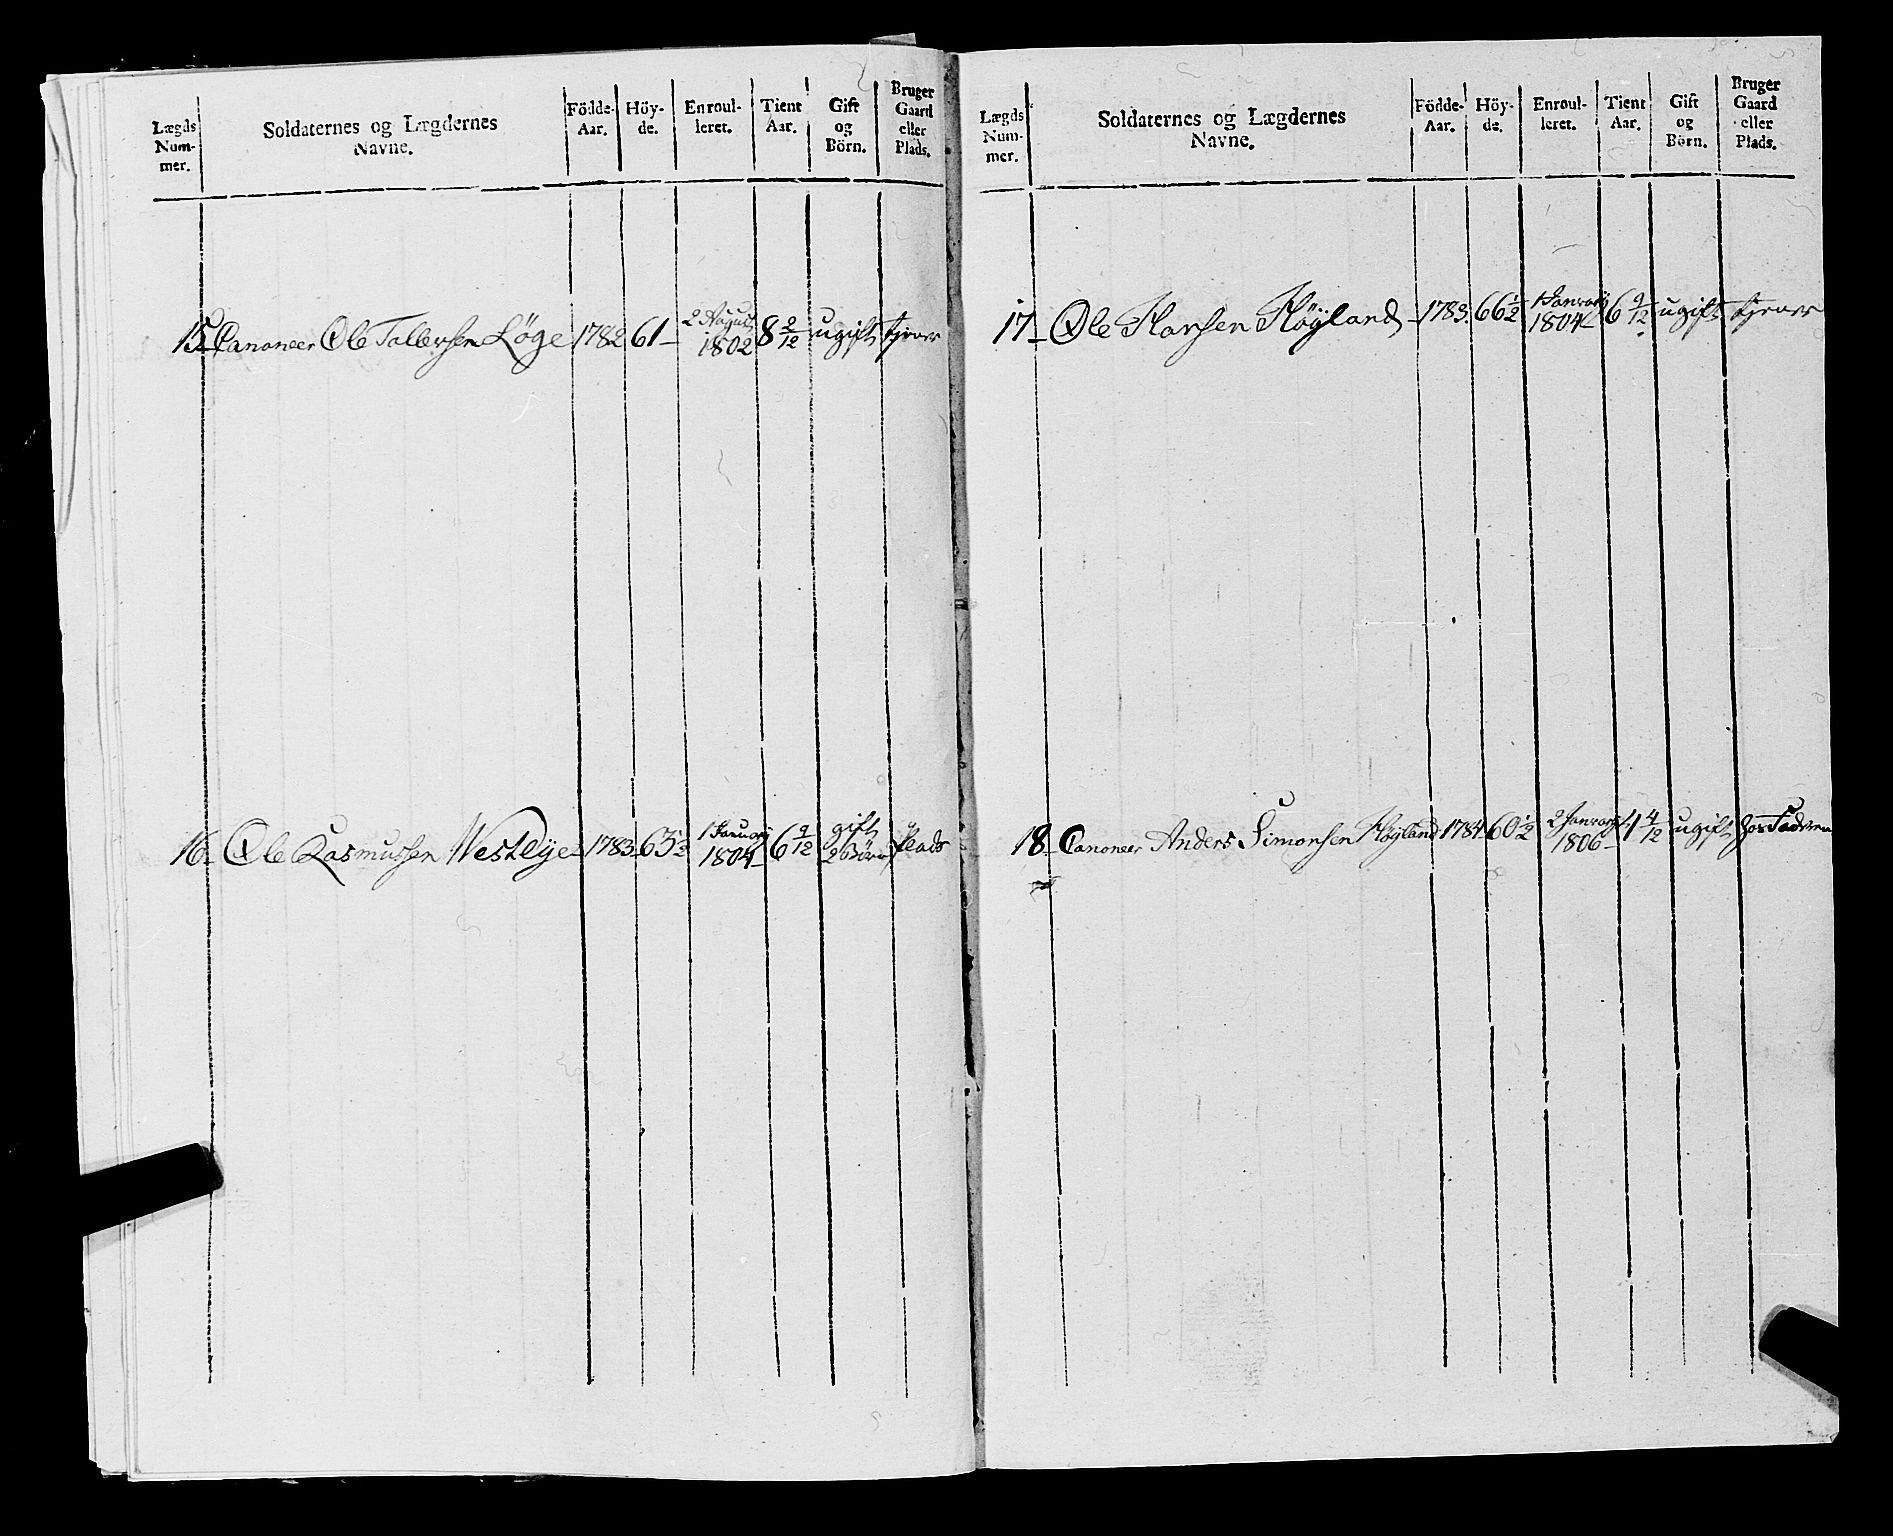 Lægds Num- mer. Soldaternes og Lægdernes Navne. Födde- Aar. Höy- de. Enroul- leret. Tient Aar. Gift og Börn. Bruger Gaard eller Plads.
15 Canoneer Ole Tallersen Löge 1782 61 – 2 August 1802 8 2/12 ugift tjener
16 – Ole Rasmussen Westlye – 1783 – 63 1/2 1 January 1804 – 6 9/12 gift 2 Börn Plads
Lægds Num- mer. Soldaternes og Lægdernes Navne. Födde- Aar. Höy- de. Enroul- leret. Tient Aar. Gift og Börn. Bruger Gaard eller Plads.
17 – Ole Hansen Höyland – 1783. 66 1/2 1 January 1804 – 6 9/12 ugift tjener
18 – Canoneer Anders Simonsen Höyland 1784 60 1/2 2 January 1806 – 4 4/12 ugift hos Faderen